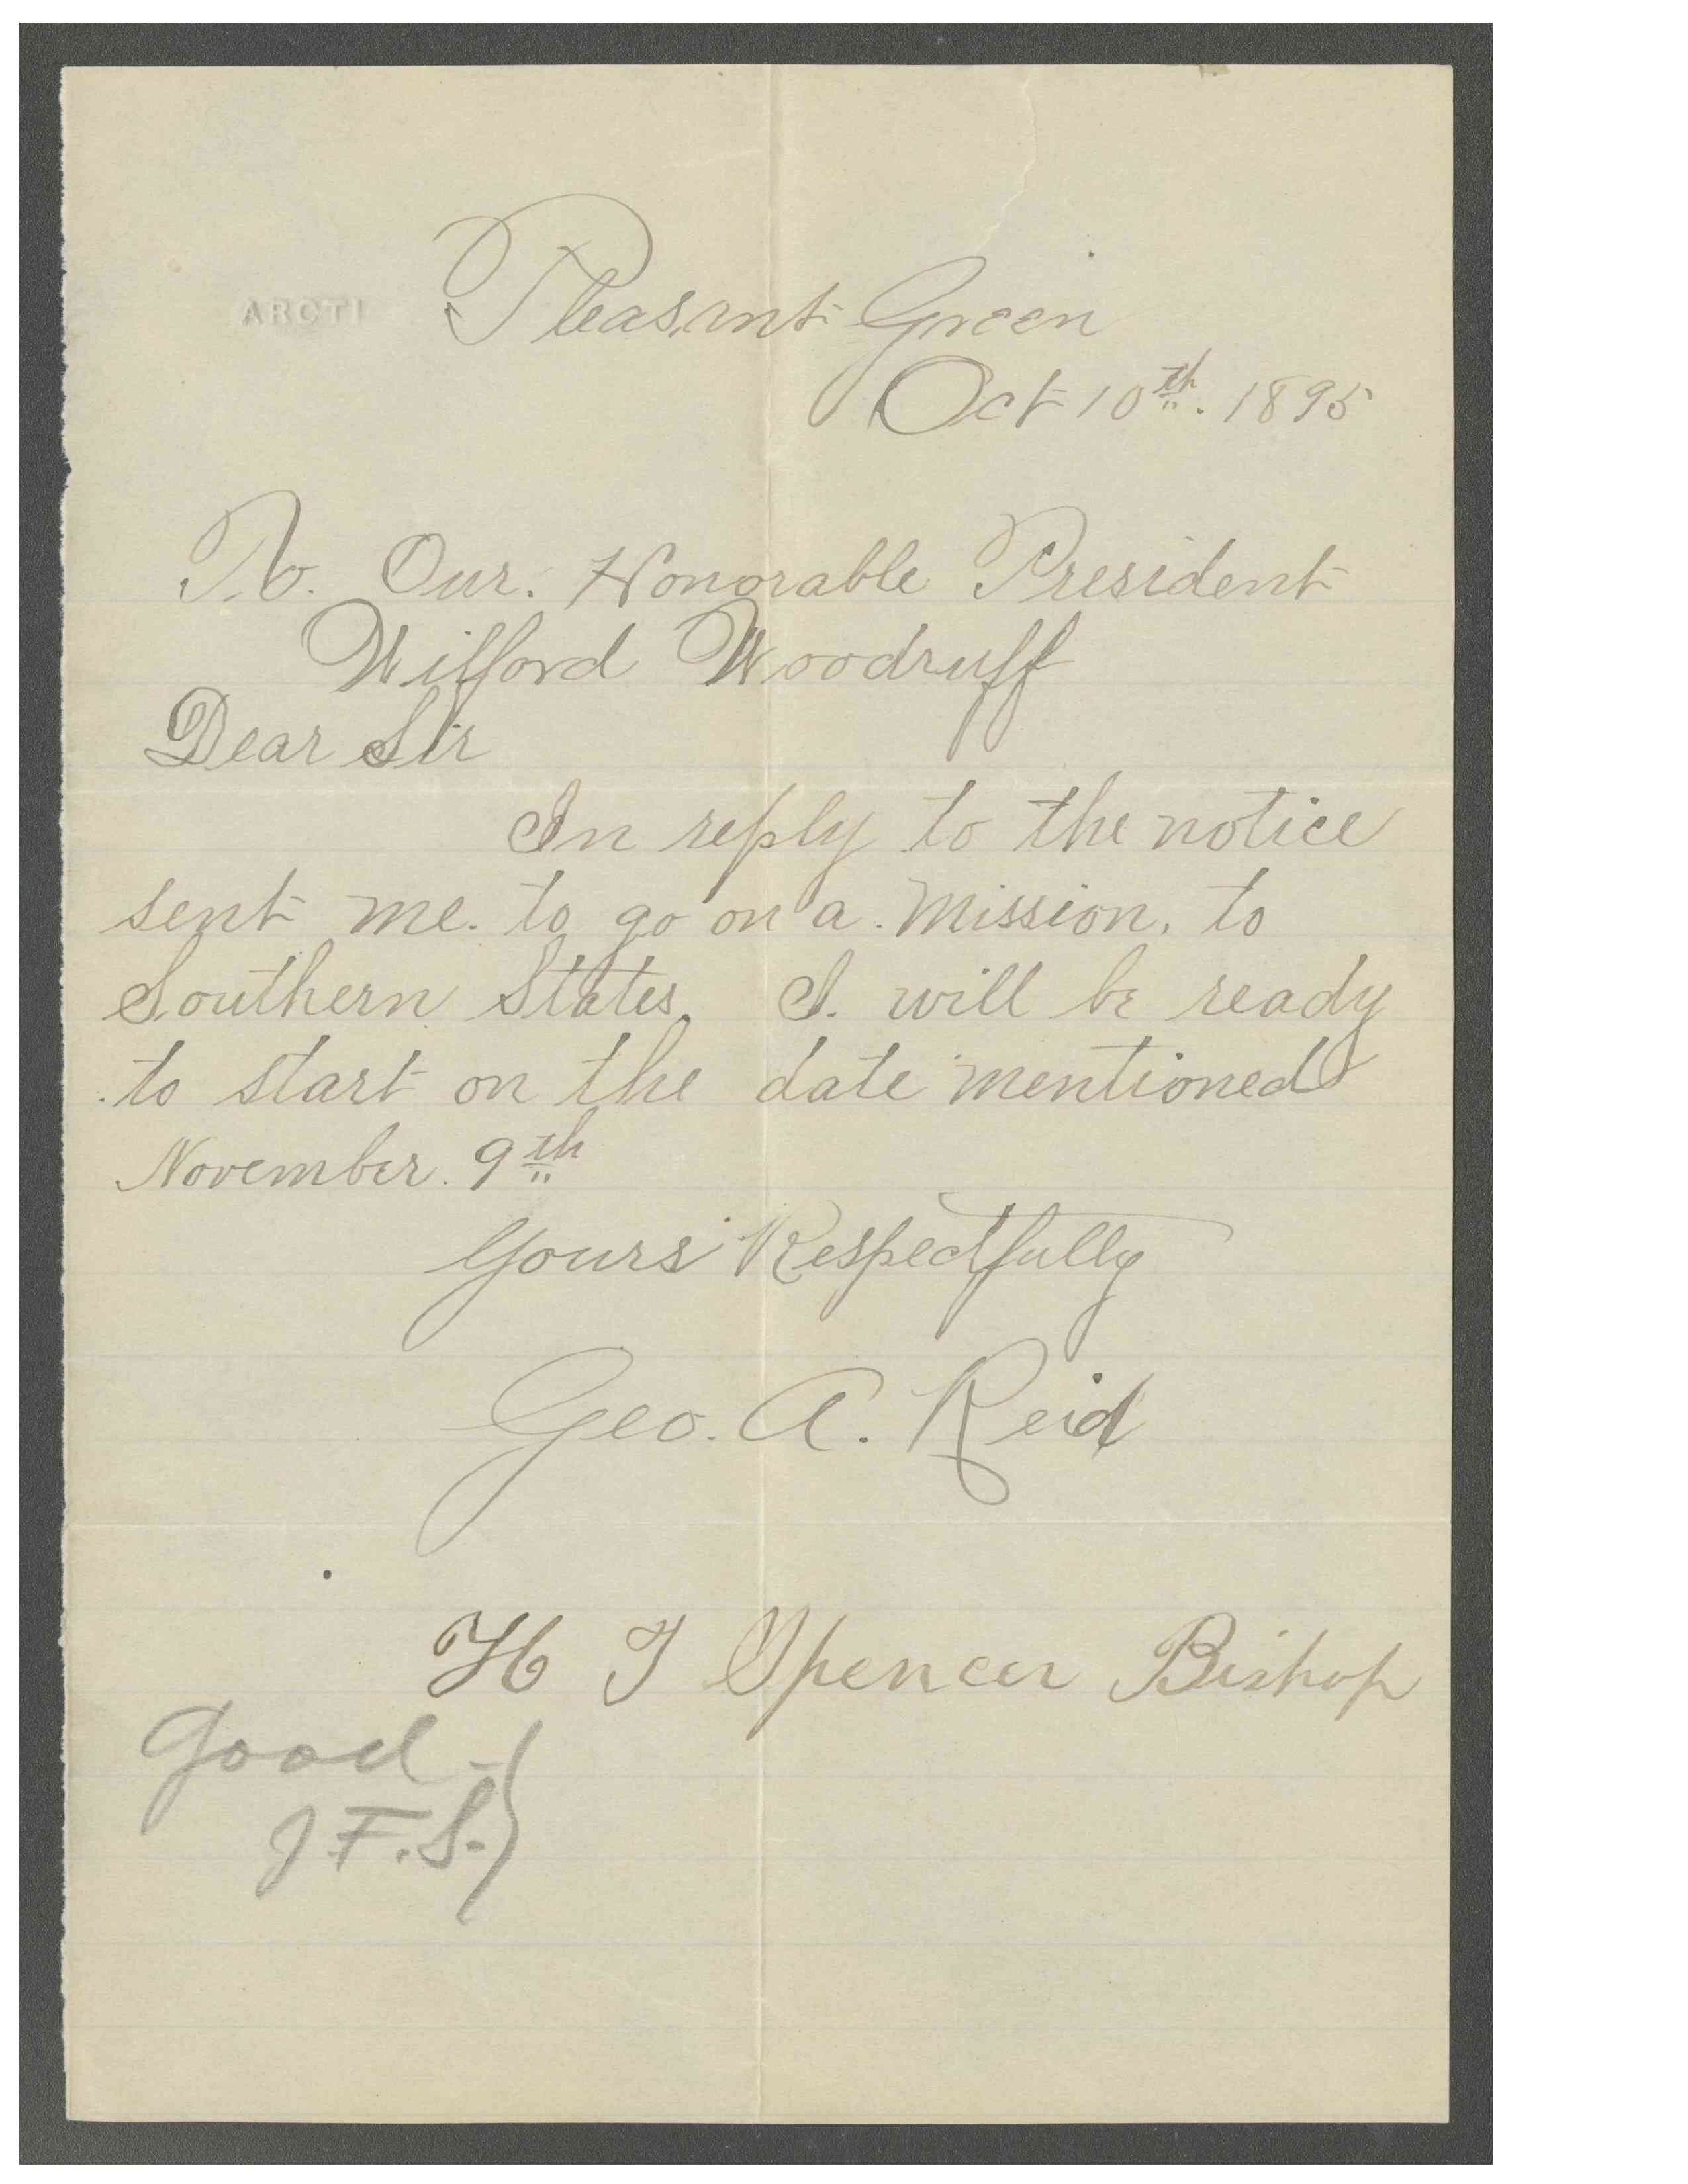 ARCTI
Pleasant Green
Oct 10th. 1895
To. Our. Honorable President
Wilford Woodruff
Dear Sir
In reply to the notice
sent me. to go on a. mission. to
Southern States. I. will be ready
to start on the date mentioned
November. 9th
Yours Respectfully
Geo. A. Reid
H T Spencer Bishop
Good -
J.F.S.